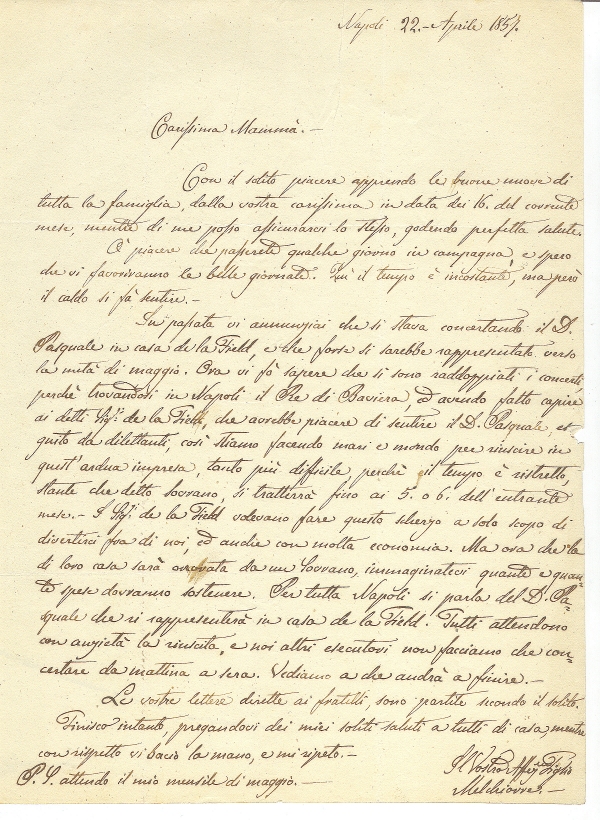 Napoli 22.- Aprile 1857.
Carissima Mammà.-
Con il solito piacere apprendo le buone nuove di
tutta la famiglia, dalla vostra carissima in data dei 16. del corrente
mese, mentre di me posso assicurarvi lo stesso, godendo perfetta salute.
Ò piacere che passerete qualche giorno in campagna, e spero
che vi favoriranno le belle giornate. Quì il tempo è incostante, ma però
il caldo si fà sentire.-
In passata vi annunziai che si stava concertando il D.
Pasquale in casa de la Field, e che forse si sarebbe rappresentato verso
la mità di maggio. Ora vi fò sapere che si sono raddoppiati i concerti,
perchè trovandosi in Napoli il Re di Baviera, ed avendo fatto capire
ai detti Sigri. de la Field, che avrebbe piacere di sentire il D. Pasquale, ese
guito da dilettanti, così stiamo facendo mari e mondo per riuscire in
quest'ardua impresa, tanto più difficile perchè il tempo è ristretto,
stante che detto Sovrano, si tratterrà fino ai 5. o 6. dell'entrante
mese.- I Sigri. de la Field volevano fare questo scherzo a solo scopo di
divertirci fra di noi, ed anche con molta economia. Ma ora che la
di loro casa sarà onorata da un Sovrano, immaginatevi quante e quan=
te spese dovranno sostenere. Per tutta Napoli si parla del D. Pa=
squale che si rappresenterà in casa de la Field. Tutti attendono
con anzietà la riuscita, e noi altri esecutori non facciamo che con=
certare da mattina a sera. Vediamo a che andrà a finire.-
Le vostre lettere dirette ai fratelli, sono partite secondo il solito.
Finisco intanto, pregandovi dei miei soliti saluti a tutti di casa, mentre
con rispetto vi bacio la mano, e mi ripeto.-
Il Vostro Affmo. Figlio
Melchiorre.-
P. S. attendo il mio mensile di maggio.-